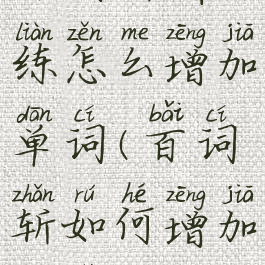 liàn zěn me zēng jiā
练怎么增加
dān cí bǎi cí
单词(百词
zhǎn rú hé zēng jiā
斩如何增加